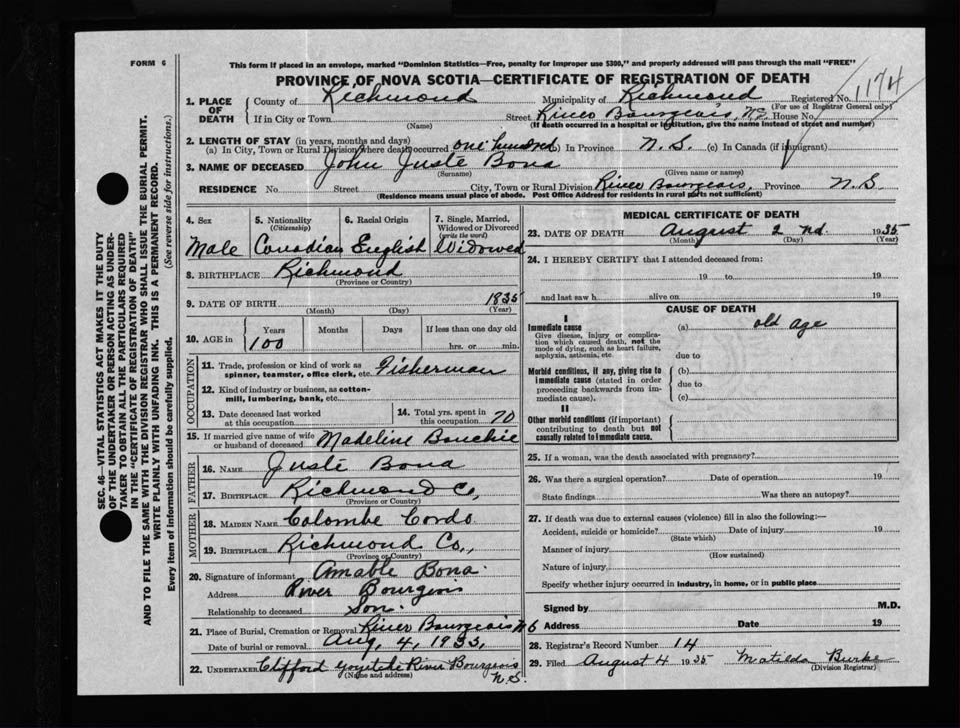 FORM 6
This form if placed in an envelope, marked "Dominion Statistics—Free, penalty for improper use $300," and properly addressed will pass through the mail "FREE"
PROVINCE OF NOVA SCOTIA—CERTIFICATE OF REGISTRATION OF DEATH
1174
1. PLACE OF DEATH
County of Richmond Municipality of Richmond Registered No.
(For use of Registrar General only)
If in City or Town Street River Bourgeois, N.S. House No.
(Name) (If death occurred in a hospital or institution, give the name instead of street and number)
2. LENGTH OF STAY (in years, months and days)
(a) In City, Town or Rural Division where death occurred one hundred (b) In Province N.S. (c) In Canada (if immigrant)
3. NAME OF DECEASED John Juste Bona
(Surname) (Given name or names)
RESIDENCE No. Street City, Town or Rural Division River Bourgeois, Province N.S.
(Residence means usual place of abode. Post Office Address for residents in rural parts not sufficient)
SEC. 46—VITAL STATISTICS ACT MAKES IT THE DUTY
OF THE UNDERTAKER OR PERSON ACTING AS UNDER-
TAKER TO OBTAIN ALL THE PARTICULARS REQUIRED
IN THE "CERTIFICATE OF REGISTRATION OF DEATH"
AND TO FILE THE SAME WITH THE DIVISION REGISTRAR WHO SHALL ISSUE THE BURIAL PERMIT.
WRITE PLAINLY WITH UNFADING INK. THIS IS A PERMANENT RECORD.
Every item of information should be carefully supplied. (See reverse side for instructions.)
4. Sex 5. Nationality (Citizenship) 6. Racial Origin 7. Single, Married, Widowed or Divorced (write the word)
Male Canadian English Widowed
8. BIRTHPLACE Richmond
(Province or Country)
9. DATE OF BIRTH 1835
(Month) (Day) (Year)
10. AGE in Years Months Days If less than one day old
100 hrs. or min.
OCCUPATION
11. Trade, profession or kind of work as spinner, teamster, office clerk, etc. Fisherman
12. Kind of industry or business, as cotton-mill, lumbering, bank, etc.
13. Date deceased last worked at this occupation 14. Total yrs. spent in this occupation 70
15. If married give name of wife or husband of deceased Madeline Bouchie
FATHER
16. NAME Juste Bona
17. BIRTHPLACE Richmond Co,
(Province or Country)
MOTHER
18. MAIDEN NAME Colombe Cordo
19. BIRTHPLACE Richmond Co.,
(Province or Country)
20. Signature of informant Amable Bona
Address River Bourgeois
Relationship to deceased Son.
21. Place of Burial, Cremation or Removal River Bourgeois N S
Date of burial or removal Aug, 4, 1935,
22. UNDERTAKER Clifford River Bourgeois
(Name and address) N.S.
MEDICAL CERTIFICATE OF DEATH
23. DATE OF DEATH August 2 nd. 1935
(Month) (Day) (Year)
24. I HEREBY CERTIFY that I attended deceased from:
19 to 19
and last saw h alive on 19
CAUSE OF DEATH
I
Immediate cause (a) old age
Give disease, injury or complication which caused death, not the mode of dying, such as heart failure, asphyxia, asthenia, etc.
due to
Morbid conditions, if any, giving rise to immediate cause (stated in order proceeding backwards from immediate cause).
(b)
due to
(c)
II
Other morbid conditions (if important) contributing to death but not causally related to immediate cause.
25. If a woman, was the death associated with pregnancy?
26. Was there a surgical operation? Date of operation 19
State findings Was there an autopsy?
27. If death was due to external causes (violence) fill in also the following:—
Accident, suicide or homicide? Date of injury 19
(State which)
Manner of injury
(How sustained)
Nature of injury
Specify whether injury occurred in industry, in home, or in public place
Signed by M.D.
Address Date 19
28. Registrar's Record Number 14
29. Filed August 4 1935 Matilda Burke
(Division Registrar)